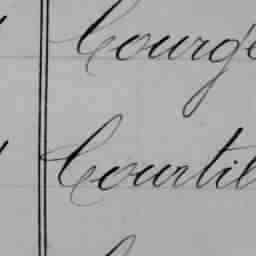 Courgé
Courtil